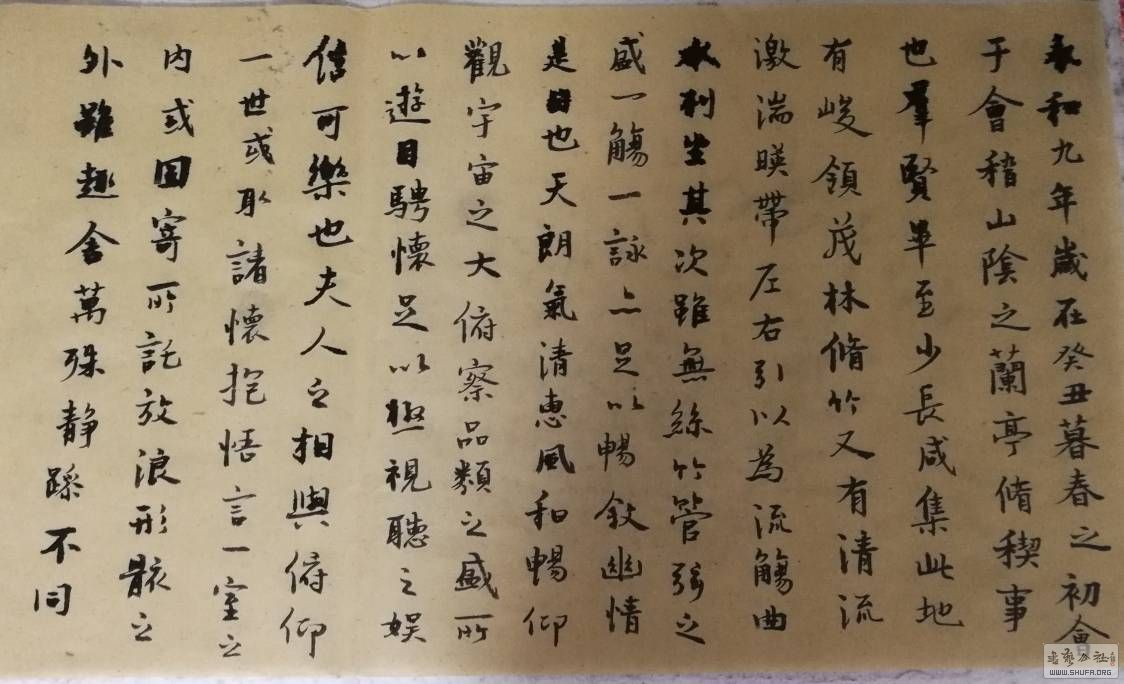 永和九年歲在癸丑暮春之初會
于會稽山陰之蘭亭脩稧事
也羣賢畢至少長咸集此地
有峻領茂林脩竹又有清流
激湍暎帶左右引以為流觴曲
水列坐其次雖無絲竹管弦之
盛一觴一詠亦足以暢敘幽情
是日也天朗氣清惠風和暢仰
觀宇宙之大俯察品類之盛所
以遊目騁懷足以極視聽之娛
信可樂也夫人之相與俯仰
一世或取諸懷抱悟言一室之
內或因寄所託放浪形骸之
外雖趣舍萬殊靜躁不同
書艺公社
WWW.SHUFA.ORG